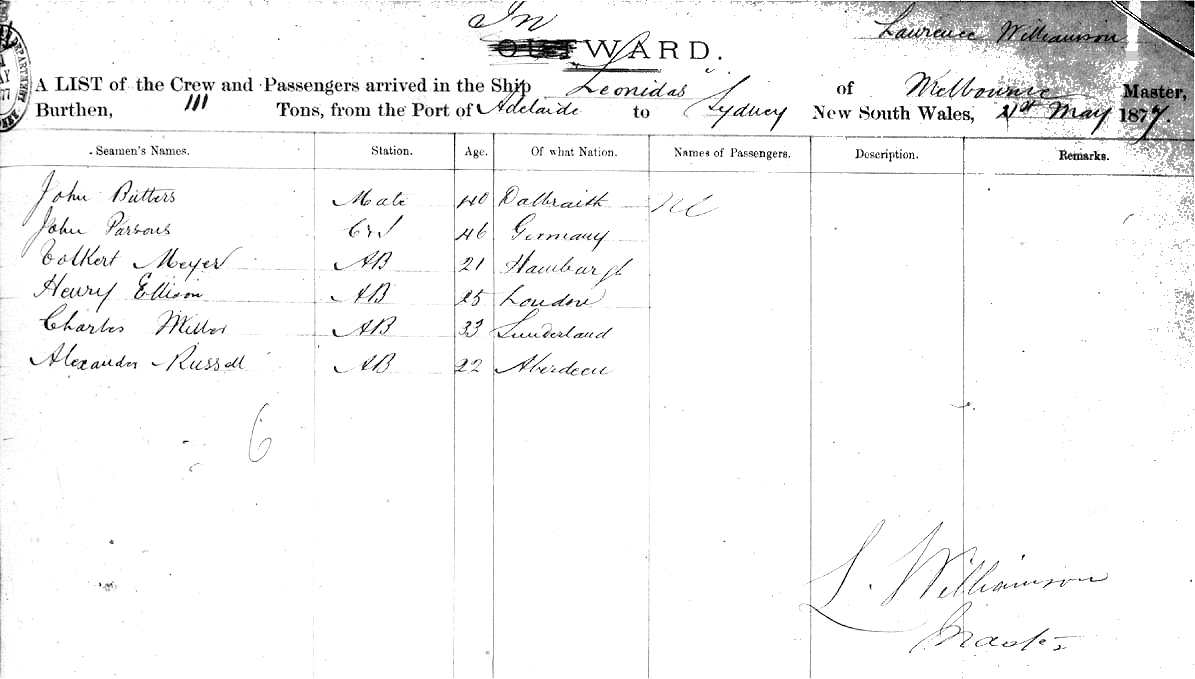 In
OUTWARD.
Lawrence Williamson
A LIST of the Crew and Passengers arrived in the Ship Leonidas of Melbourne Master,
Burthen, 111 Tons, from the Port of Adelaide to Sydney New South Wales, 21st May 1877.
Seamen's Names. Station. Age. Of what Nation. Names of Passengers. Description. Remarks.
John Butters Mate 40 Dalbraith
John Parsons 46 Germany
Volkert Meyer AB 21 Hamburgh
Henry Ellison AB 25 London
Charles Miller AB 33 Sunderland
Alexander Russell AB 22 Aberdeen
6
L. Williamson
Master